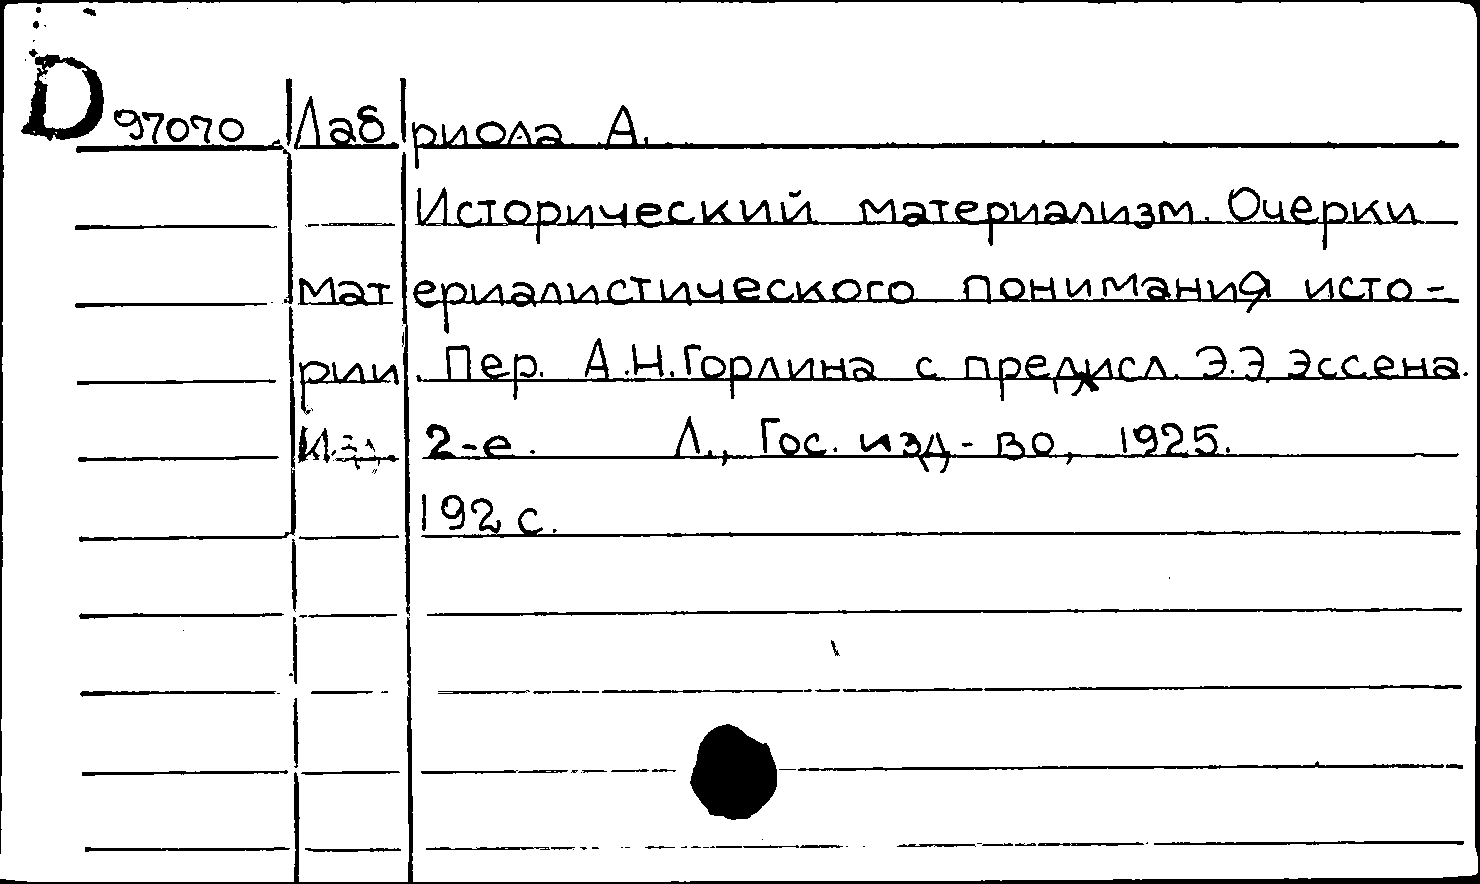 D 97070 Лабриола А.
Исторический материализм. Очерки
материалистического понимания исто-
рии. Пер. А.Н.Горлина с предисл. Э.Э Эссена.
Изд. 2-е. Л., Гос. изд-во, 1925.
192 с.